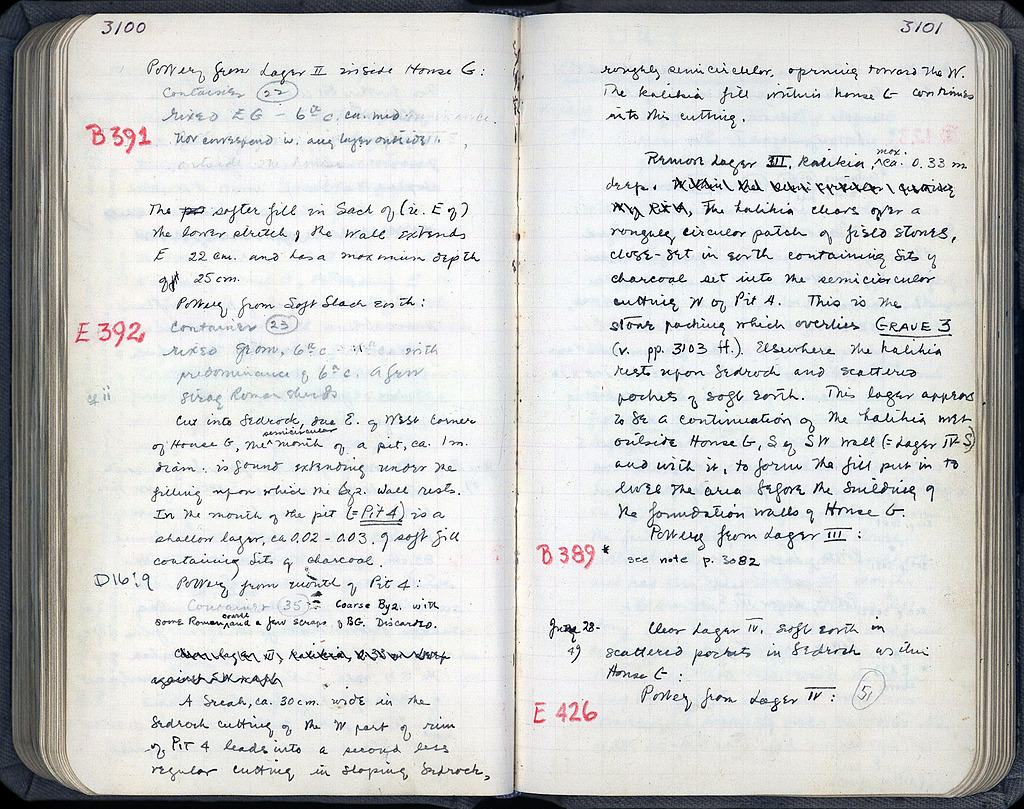 3100
Pottery from Layer II inside House G:
Container 22
Mixed EG - 6th c, ca. mid
B 391
Not correspond w. any layer outside.
The softer fill in back of (i.e. E of)
the lower stretch of the wall extends
E 22 cm. and has a maximum depth
of 25 cm.
Pottery from Soft black earth:
Container 23
E 392
Mixed Geom, 6th c with
predominance of 6th c. A few
stray Roman sherds
cf ii
Cut into bedrock, due E. of West corner
of House G, the semicircular mouth of a pit, ca. 1 m.
diam. is found extending under the
filling upon which the Byz. wall rests.
In the mouth of the pit (= Pit 4) is a
shallow layer, ca 0.02 - 0.03, of soft fill
containing bits of charcoal.
D16:9
Pottery from mouth of Pit 4:
Container 35 = Coarse Byz. with
some Roman coarse and a few scraps of BG. Discarded.
Clear layer III, kalikia, 0.33 m deep
against SW wall
A break, ca. 30 cm. wide in the
bedrock cutting of the W part of rim
of Pit 4 leads into a second less
regular cutting in sloping bedrock,
3101
roughly semicircular, opening toward the W.
The kalikia fill within house G continues
into this cutting.
Remove Layer III, kalikia, max. ca. 0.33 m
deep.
The kalikia clears over a
roughly circular patch of field stones,
close-set in earth containing bits of
charcoal set into the semicircular
cutting W of Pit 4. This is the
stone packing which overlies GRAVE 3
(v. pp. 3103 ff.). Elsewhere the kalikia
rests upon bedrock and scattered
pockets of soft earth. This layer appears
to be a continuation of the kalikia met
outside House G, S of SW wall (= Layer IV S)
and with it, to form the fill put in to
level the area before the building of
the foundation walls of House G.
Pottery from Layer III:
B 389 * see note p. 3082
June 28-
49
Clear Layer IV, soft earth in
scattered pockets in bedrock within
House G:
Pottery from Layer IV: 51
E 426